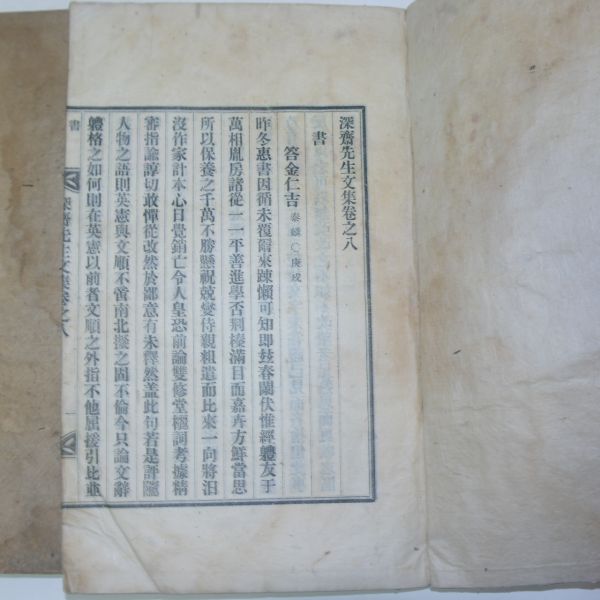 深齋先生文集卷之八
書
答金仁吉 泰麟○庚戌
昨冬惠書因循未覆爾來踈懶可知即玆春闌伏惟經軆友于
萬相胤房諸從一一平善進學否荊榛滿目而嘉卉方鮮當思
所以保養之千萬不勝懸祝兢燮侍親粗遣而比來一向將汨
沒作家計本心日覺銷亡令人皇恐前論雙修堂 詞考據精
審指論諄切敢憚從改然於鄙意有未釋然盖此句若是評隲
人物之語則英憲與文順不啻南北擬之固不倫今只論文辭
軆格之如何則在英憲以前者文順之外指不他屈援引比並
書
深齋先生文集卷之八
一